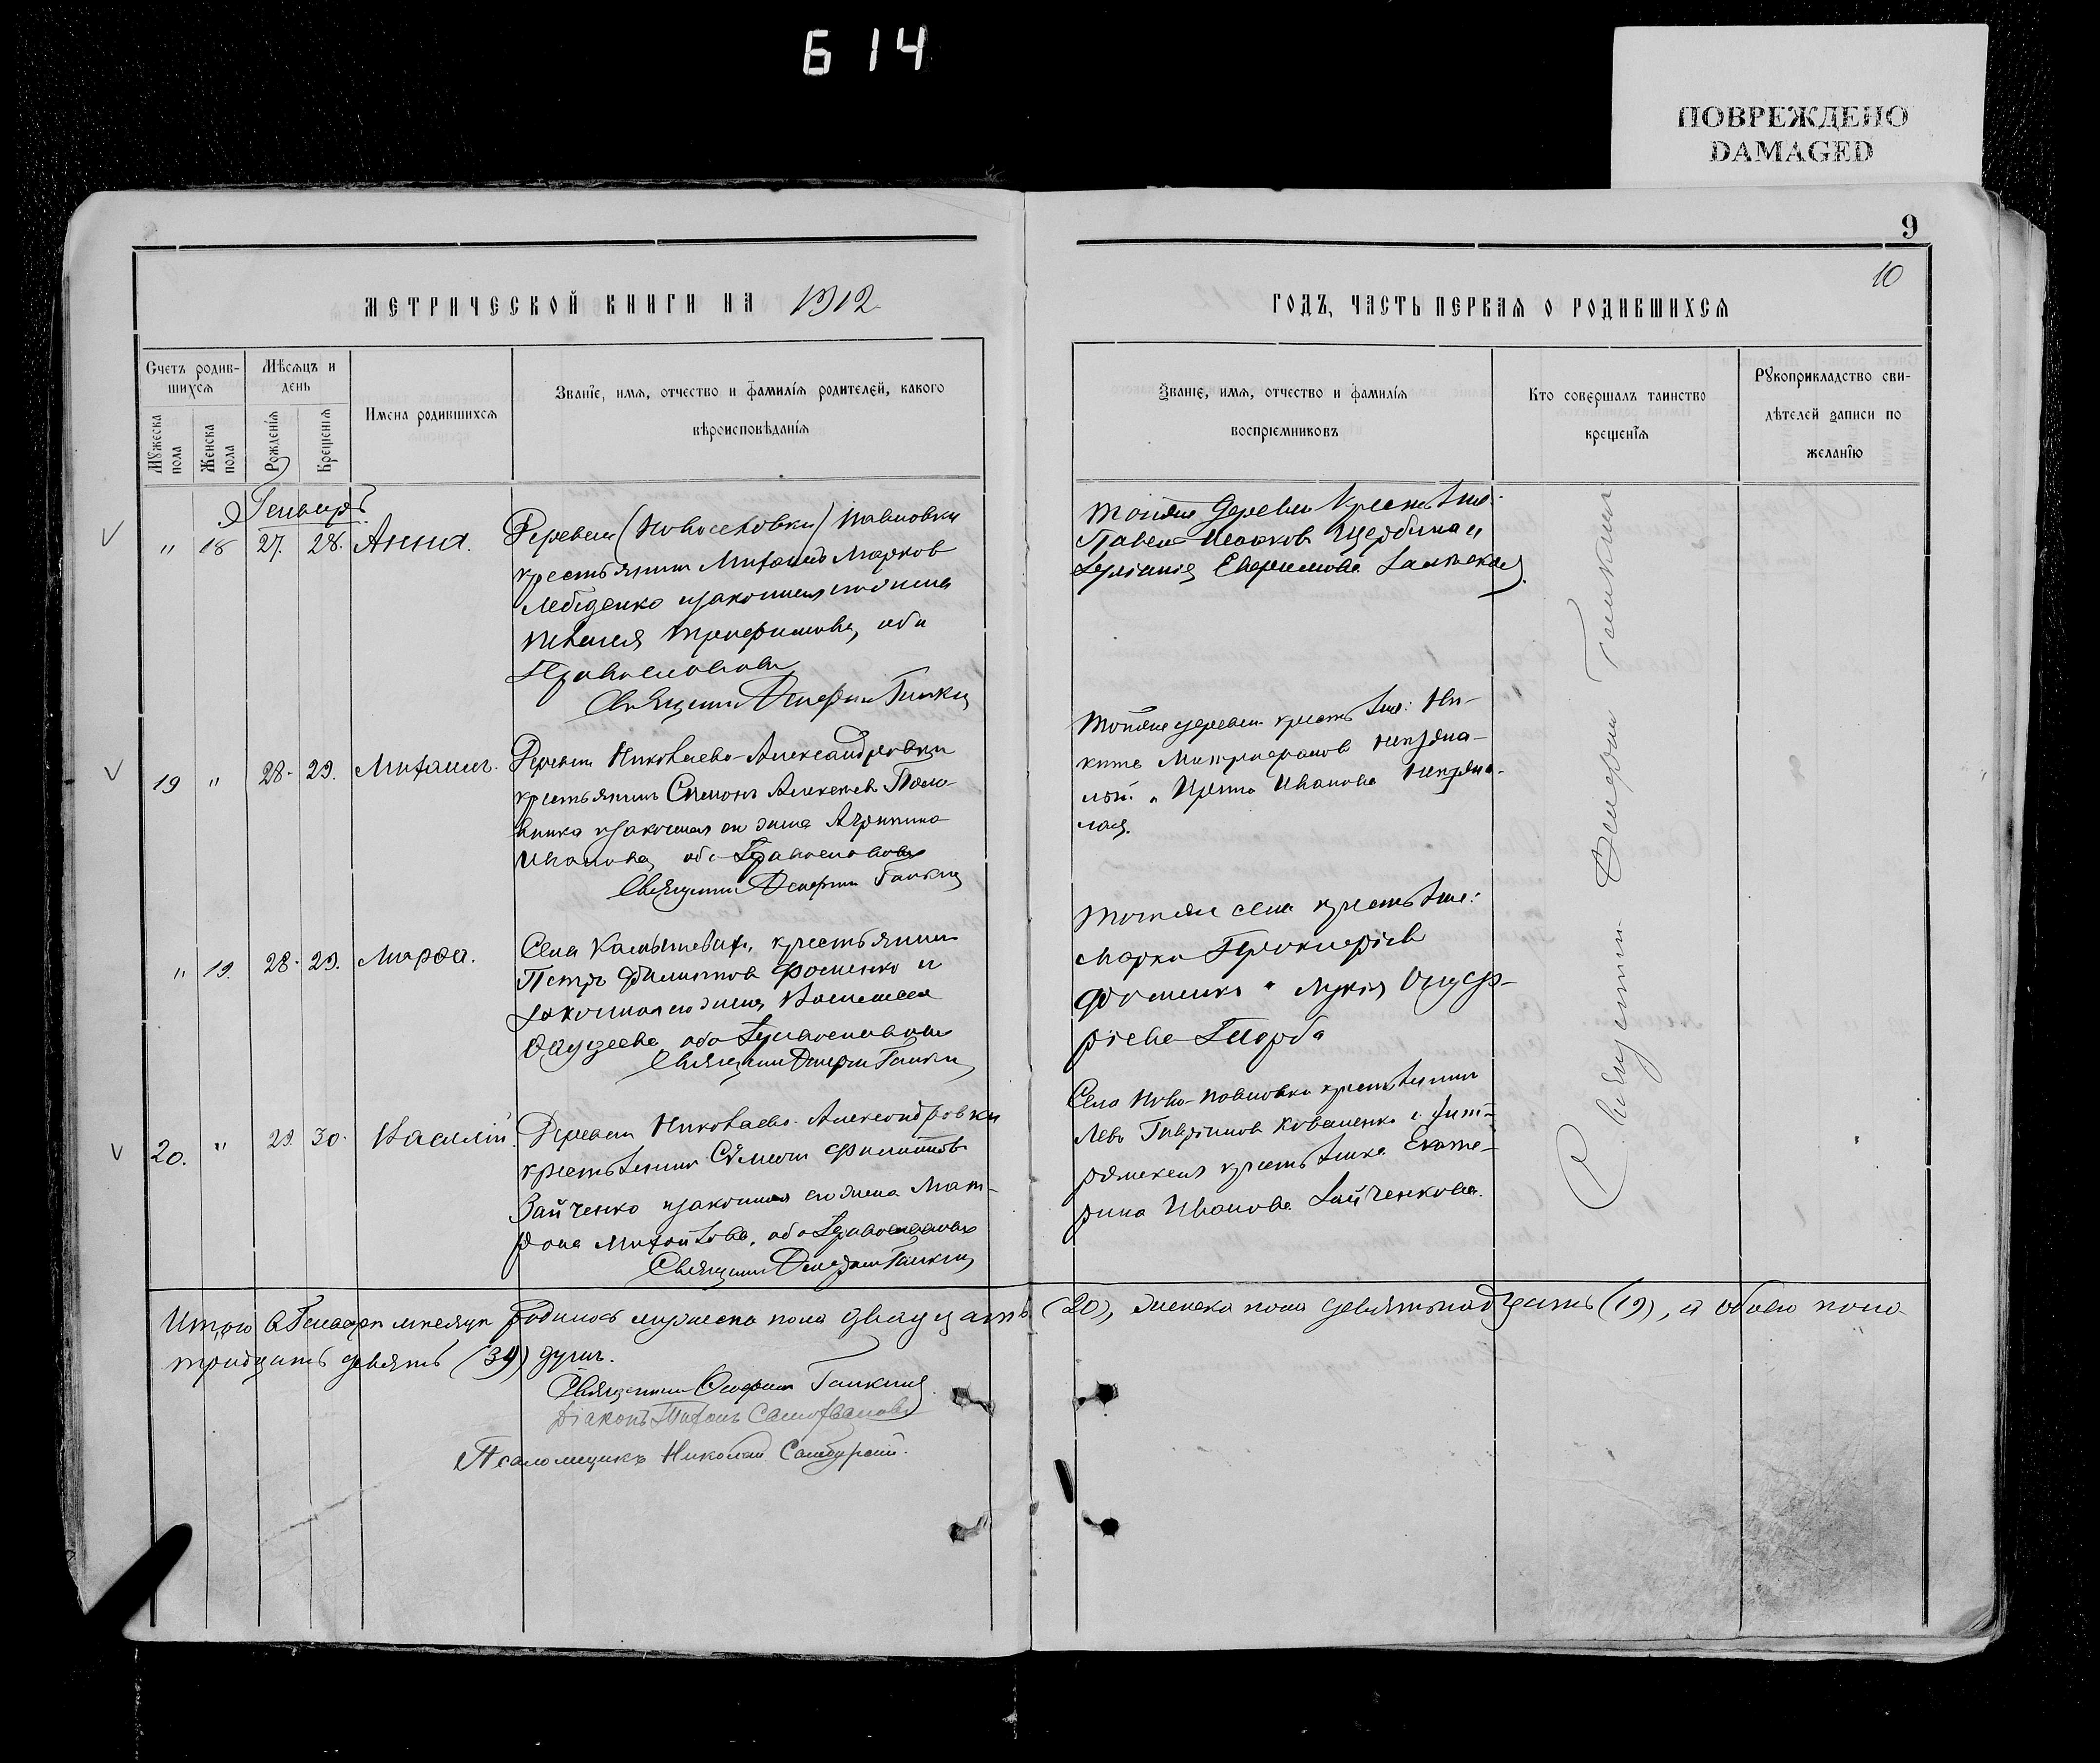 614
ПОВРЕЖДЕНО
DAMAGED
9
10
МЕТРИЧЕСКОЙ КНИГИ НА 1912
ГОДЪ, ЧАСТЬ ПЕРВАЯ О РОДИВШИХСЯ
Счетъ родив-
шихся
Мужеска пола
Женска пола
Мѣсяцъ и
день
Рожденія
Крещенія
Имена родившихся
Званіе, имя, отчество и фамилія родителей, какого
вѣроисповѣданія
Званіе, имя, отчество и фамилія
воспріемниковъ
Кто совершалъ таинство
крещенія
Рукоприкладство сви-
дѣтелей записи по
желанію
Генварь
" 18 27. 28. Анна.
Деревни (Новоселовки) Павловки
крестьянинъ Михаилъ Марковъ
Лебеденко и законная его жена
Трофимова, оба
Православные
Священникъ Гапкинъ
Тойже деревни крестьяне:
Павелъ Исааковъ Щербина и
Евфимова
19 " 28. 29. Михаилъ.
Деревни Николаево-Александровки
крестьянинъ Симеонъ Алексѣевъ Поло-
винка и законная его жена Агрипина
Иванова, оба Православные
Священникъ Гапкинъ
Тойже деревни крестьяне: Ни-
кита Митрофановъ
и Ирина Иванова
" 19. 28. 29. Марфа.
Села Камышеваха, крестьянинъ
Петръ Филипповъ Фоменко и
законная его жена Василисса
Фаддеева, оба Православные
Священникъ Гапкинъ
Тогоже села крестьяне:
Марко Прокопіевъ
Фоменко и Лукія Онуф-
ріева Торба
20. " 29. 30. Василій.
Деревни Николаево-Александровки
крестьянинъ Симеонъ Филипповъ
Зайченко и законная его жена Мат-
рона Михайлова, оба Православные
Священникъ Гапкинъ
Села Ново-Павловки крестьянинъ
Левъ Гавріиловъ Коваленко и
крестьянка Екате-
рина Иванова Зайченкова.
Священникъ Гапкинъ
Итого въ Генварѣ мѣсяцѣ родилось мужеска пола двадцать (20), женска пола девятнадцать (19), а обоего пола
тридцать девять (39) душъ.
Священникъ Гапкинъ
Діаконъ Тихонъ Самохваловъ
Псаломщикъ Николай